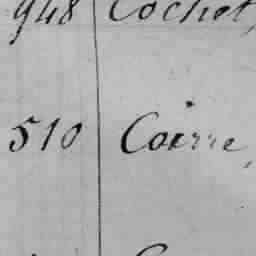 948 Cochet,
510 Coerre,